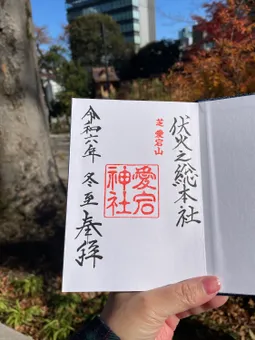 伏火之総本社
芝 愛宕山
愛宕
神社
奉拝
令和六年 冬至